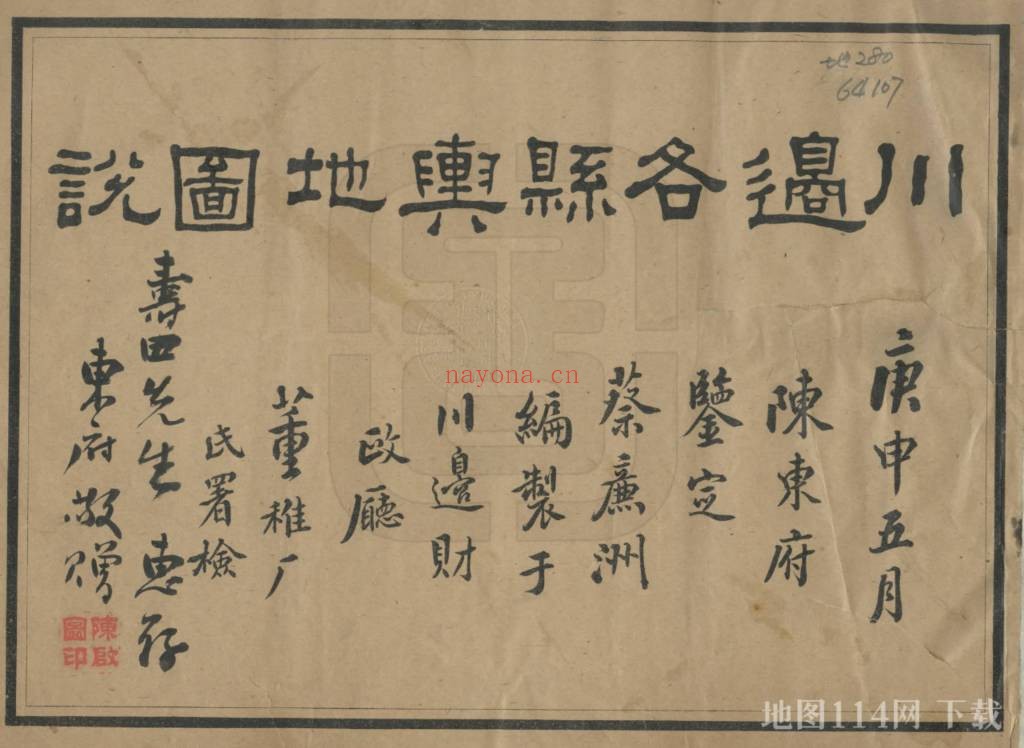 地280
64107
川邊各縣輿地圖說
庚申五月
陳東府
鑒定
蔡廉洲
編製于
川邊財
政廳
董稚厂
氏署檢
壽田先生惠存
東府敬贈
陳啟圖印
nayona.cn
地图114网 下载